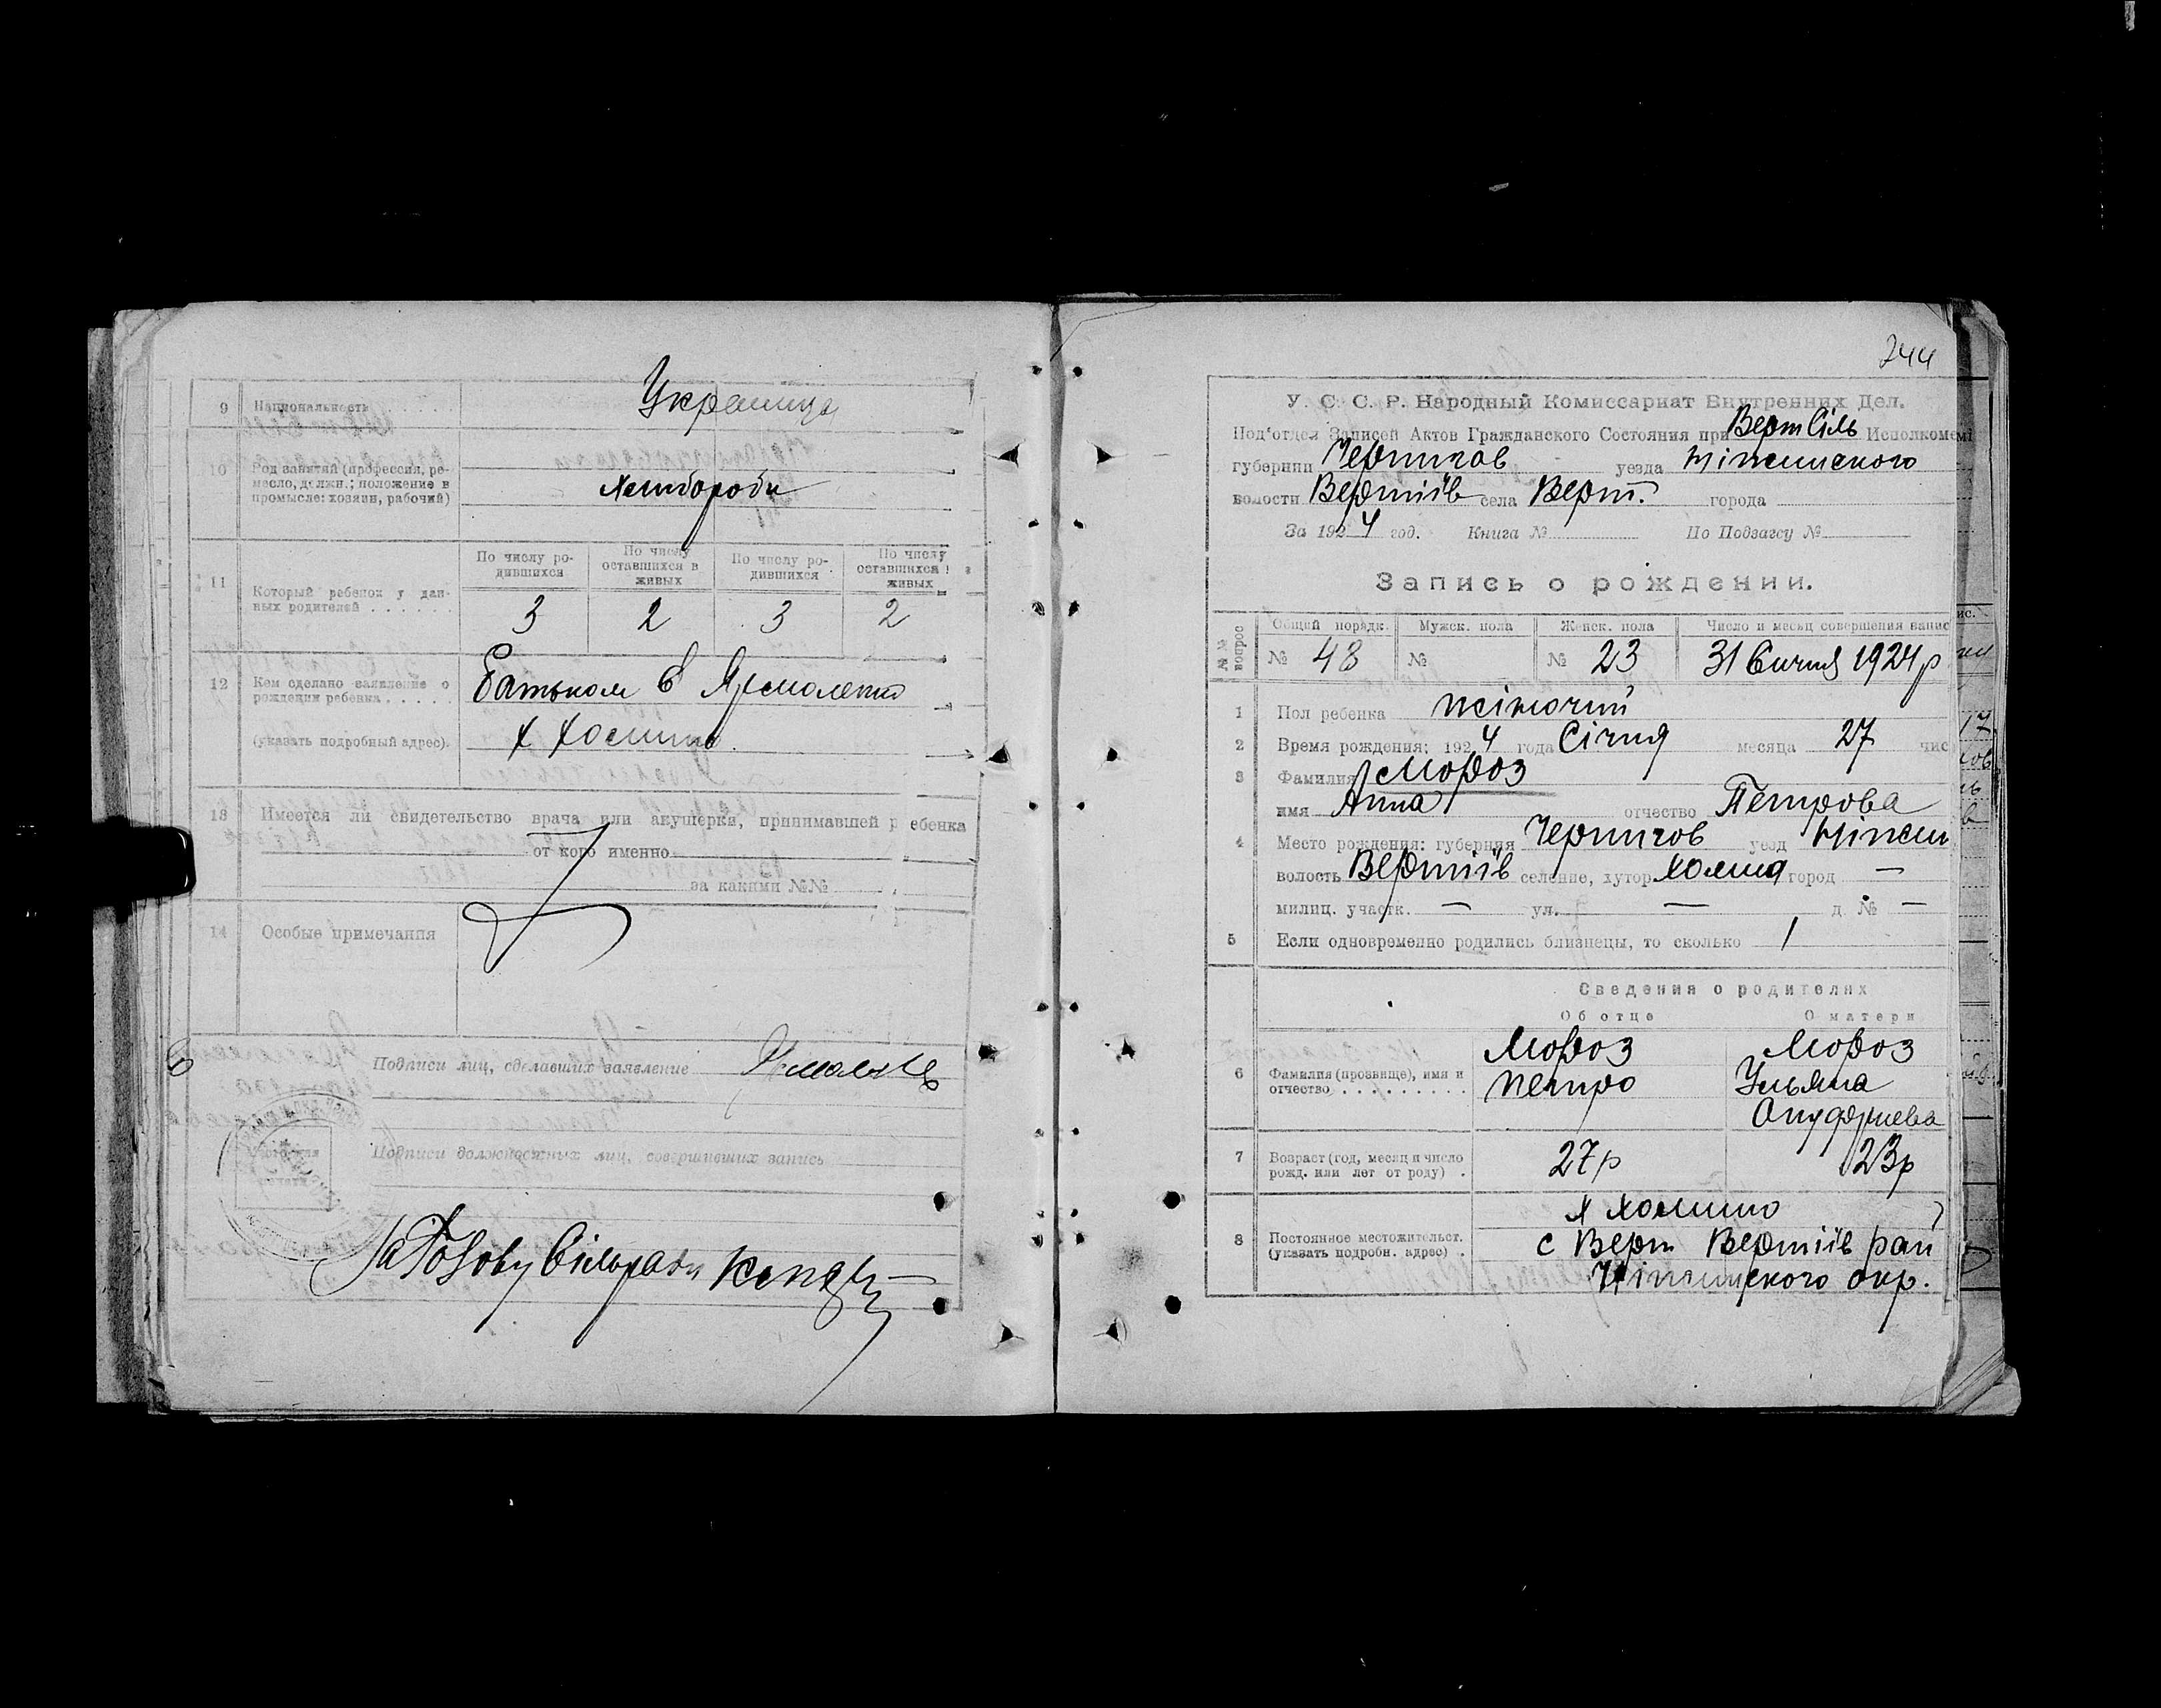 9 Национальность . . . . . Украинця
10 Род занятий (профессия, ре-
месло, должн.; положение в
промысле: хозяин, рабочий)
Хлібороби
11 Который ребенок у дан-
ных родителей . . . . . .
По числу ро-
дившихся
По числу
оставшихся в
живых
По числу ро-
дившихся
По числу
оставшихся
живых
3 2 3 2
12 Кем сделано заявление о
рождении ребенка . . . . .
(указать подробный адрес).
Батьком
х Хомино
13 Имеется ли свидетельство врача или акушерки, принимавшей ребенка
от кого именно
за какими №№
14 Особые примечания
Подписи лиц, сделавших заявление
Подписи должностных лиц, совершивших запись
За Голову Сільради
244
У. С. С. Р. Народный Комиссариат Внутренних Дел.
Под'отдел Записей Актов Гражданского Состояния при Верт Сіль Исполкоме
губернии Чернигов уезда Ніжинського
волости Вертіїв села Верт. города
За 1924 год. Книга № По Подзагсу №
Запись о рождении.
№№ вопрос
Общий порядк. Мужск. пола Женск. пола Число и месяц совершения запис
№ 48 № № 23 31 Січня 1924 р
1 Пол ребенка жіночий
2 Время рождения: 1924 года Січня месяца 27 чис
3 Фамилия Мороз
имя Анна отчество Петрова
4 Место рождения: губерния Чернигов уезд Ніжин
волость Вертіїв селение, хутор Хомина город —
милиц. участк. — ул. — д. № —
5 Если одновременно родились близнецы, то сколько 1
Сведения о родителях
Об отце О матери
6 Фамилия (прозвище), имя и
отчество . . . . . . . . .
Мороз Мороз
Петро Ульяна
7 Возраст (год, месяц и число
рожд. или лет от роду) .
27 р 23 р
8 Постоянное местожительст.
(указать подробн. адрес) .
х Хомино
с Верт Вертіїв рай
Ніжинського окр.